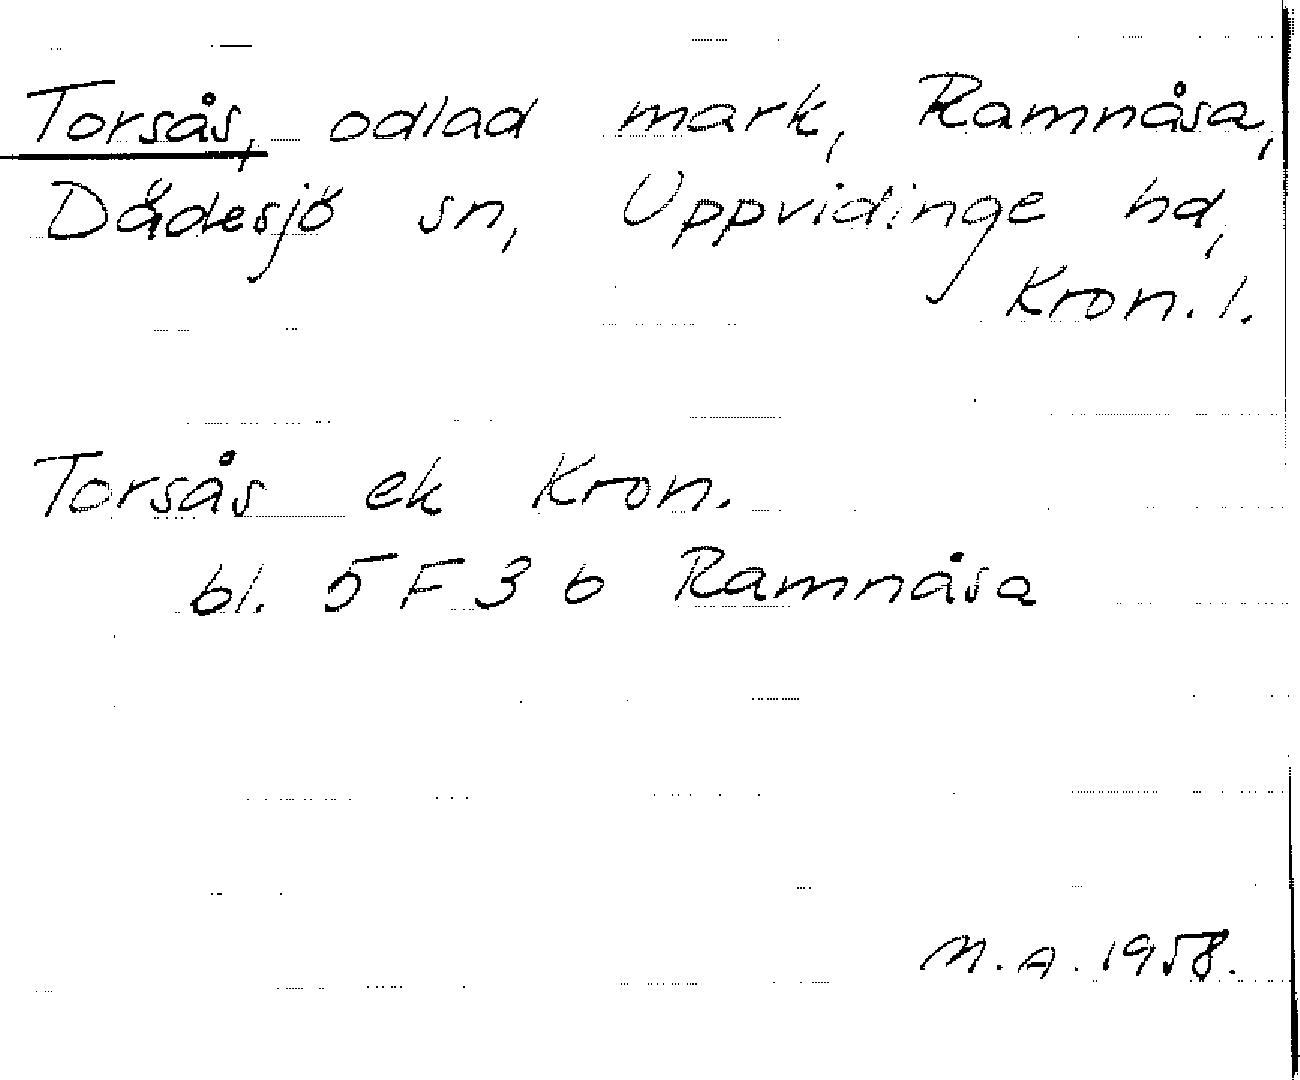 Torsås, odlad mark, Ramnåsa,
Dädesjö sn, Uppvidinge hd,
Kron. l.
Torsås ek Kron.
bl. 5 F 3 b Ramnåsa
M. A. 1958.